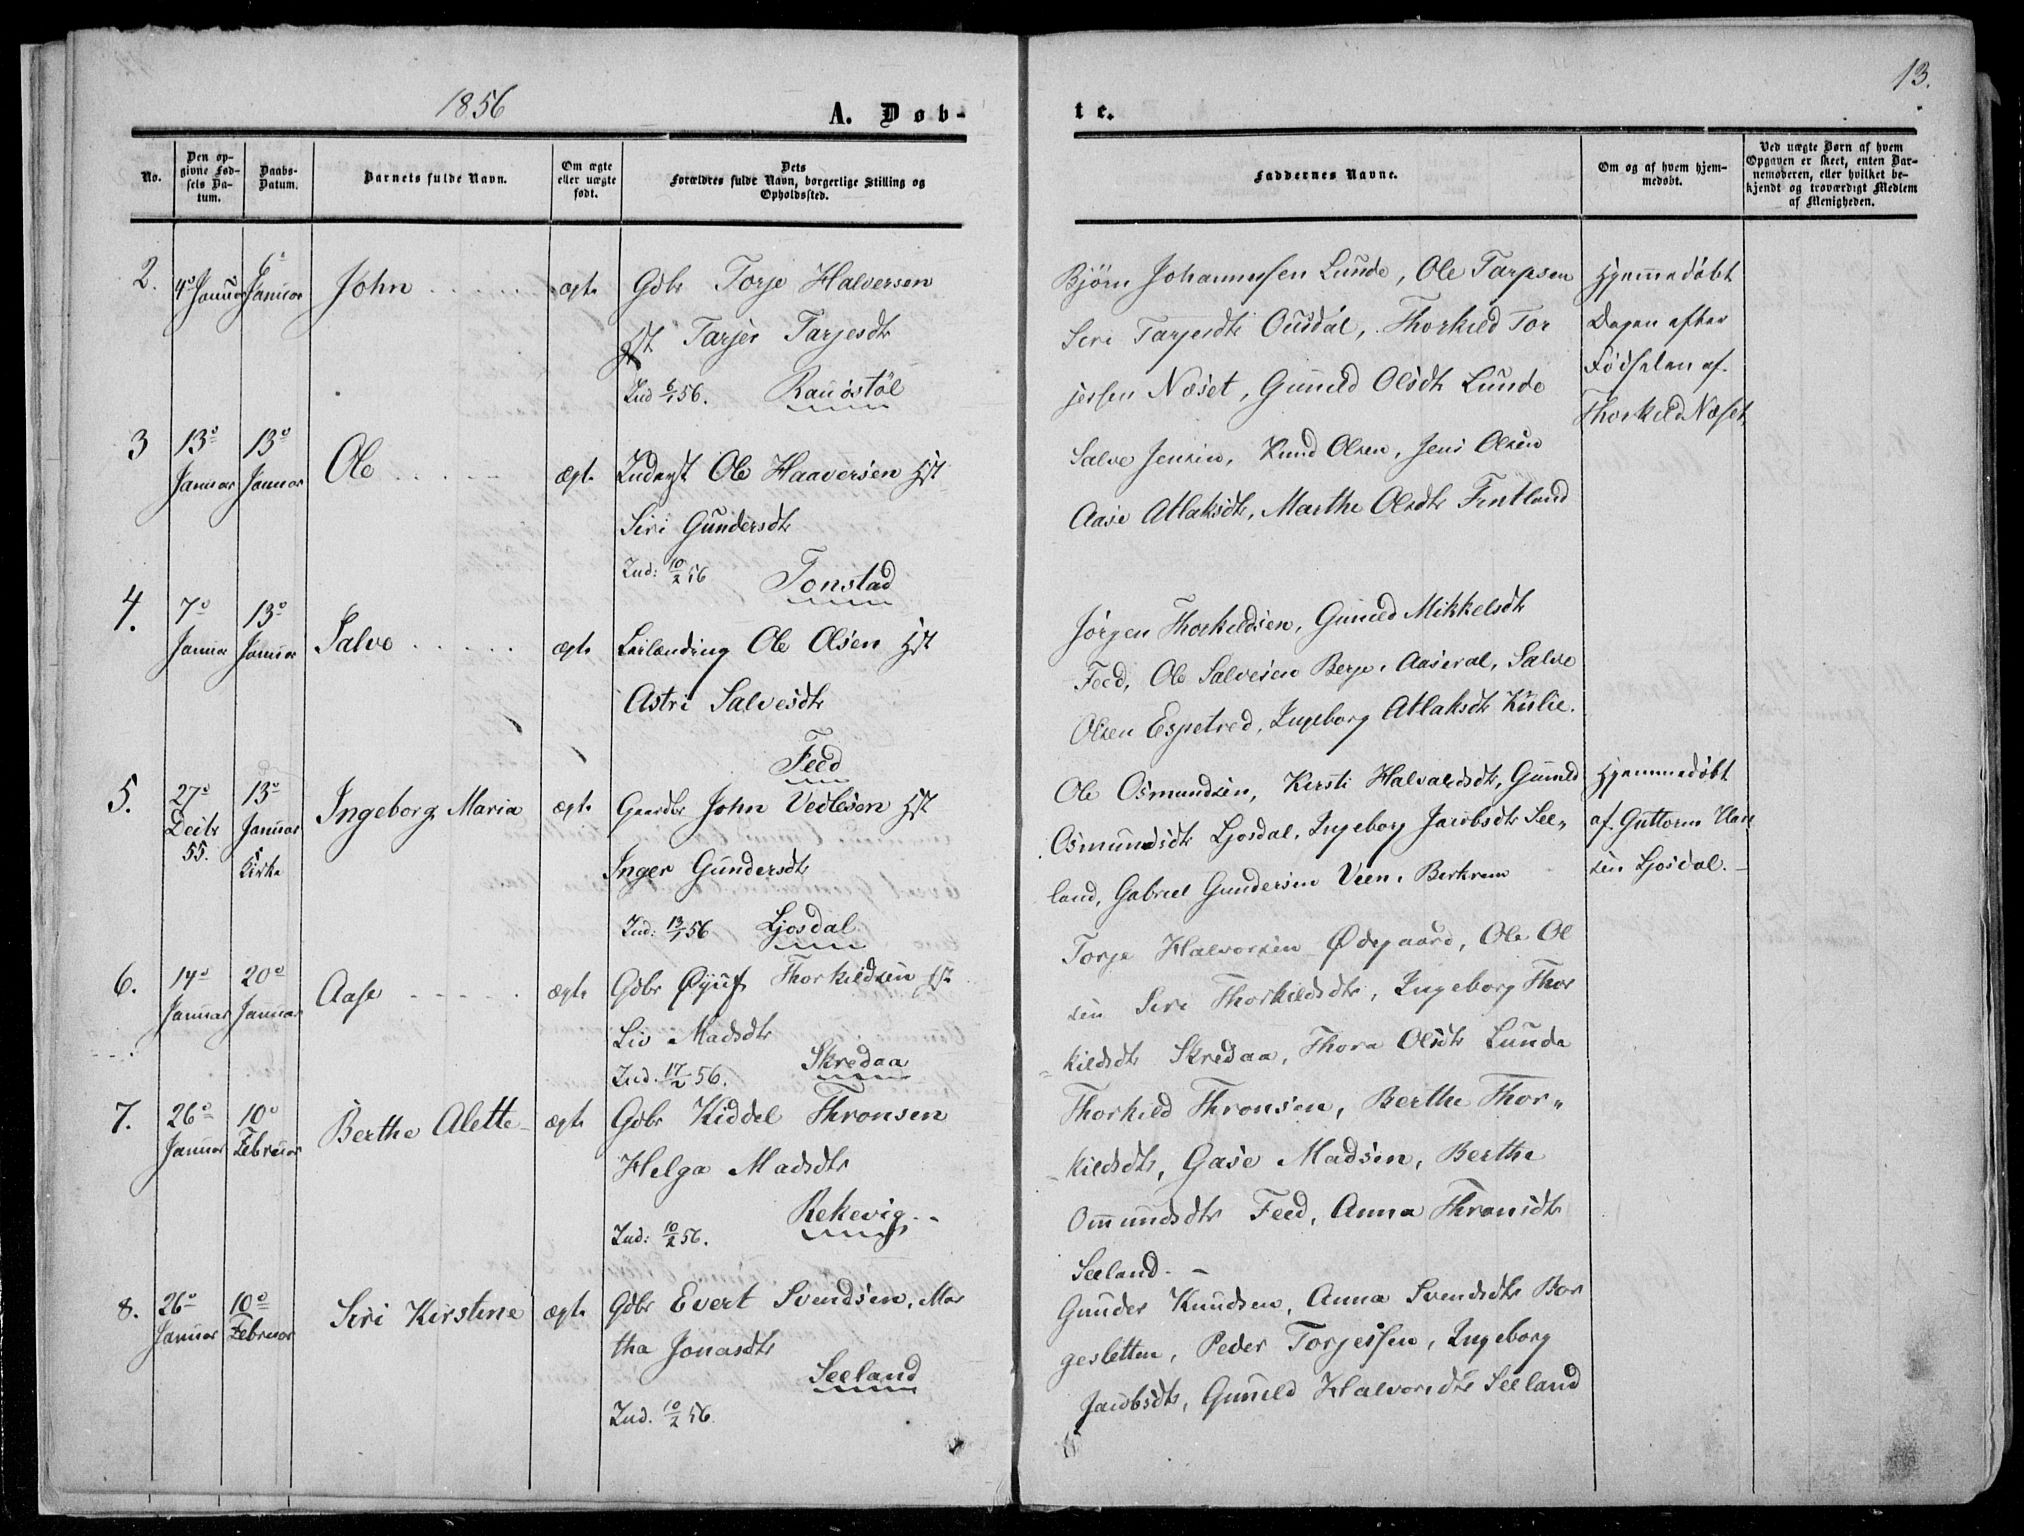 1856
A. Døb-
te.
13.
No.
Den op-
givne Fød-
sels Da-
tum.
Daabs-
Datum.
Barnets fulde Navn.
Om ægte
eller uægte
født.
Dets
Forældres fulde Navn, borgerlige Stilling og
Opholdssted.
Faddernes Navne.
Om og af hvem hjem-
medøbt.
Ved uægte Børn af hvem
Opgaven er skeet, enten Bar-
nemoderen, eller hvilket be-
kjendt og troværdigt Medlem
af Menigheden.
2. 4de Januar 6te Januar John ægte Gdbr Torje Halversen
Hst Tarjer Tarjesdtr
Ind 6/1 56. Rauøstøl
Bjørn Johannessen Lunde, Ole Tarjesen
Siri Tarjesdtr Ousdal, Thorkild Tor
jersen Næset, Gunild Olsdtr Lunde
Hjemmedøbt
Dagen efter
Fødselen af
Thorkild Næset,
3 13de Januar 13de Januar Ole ægte Inderst Ole Haaversen Hst
Siri Gundersdtr
Ind: 10/2 56 Tonstad
Salve Jensen, Knud Olsen, Jens Olsen
Aase Atlaksdtr, Marthe Olsdtr Fintland
4. 7de Januar 13de Januar Salve ægte Leilænding Ole Olsen Hst
Astri Salvesdtr
Feed
Jørgen Thorkildsen, Gunild Mikkelsdtr
Feed, Ole Salvesen Berge, Aaseral, Salve
Olsen Espetved, Ingeborg Atlaksdtr Kulie.
5. 27de Decbr 55. 13de Januar Kirke Ingeborg Maria ægte Gaardbr John Vedlesen Hst
Inger Gundersdtr
Ind: 13/1 56 Ljosdal
Ole Osmundsen, Kirsti Halvardsdtr, Gunild
Osmundsdtr Ljosdal, Ingeborg Jacobsdtr See„
land, Gabriel Gundersen Veen, Berkrem
Hjemmedøbt
af Guttorm Han
sen Ljosdal.
6. 14de Januar 20de Januar Aase ægte Gdbr Øyuf Thorkildsen Hst
Liv Madsdtr
Ind. 17/2 56. Skredaa
Torje Halvorsen Ødegaard, Ole Ol
sen Siri Thorkildsdtr, Ingeborg Thor
kildsdtr Skredaa, Thora Olsdtr Lunde
7. 26de Januar 10de Februar Berthe Alette ægte Gdbr Kiddel Thronsen
Helga Madsdtr
Ind: 10/2 56. Rekevig
Thorkild Thronsen, Berthe Thor„
kildsdtr, Gase Madsen, Berthe
Ommundsdtr Feed, Anna Thronsdtr
Seeland.
8. 26de Januar 10de Februar Siri Kirstine ægte Gdbr Evert Svendsen, Mar
tha Jonasdtr
Seeland
Ind. 10/2 56.
Gunder Knudsen, Anna Svendsdtr Bor
gesletten, Peder Torjessen, Ingeborg
Jacobsdtr, Gunild Halvorsdtr Seeland